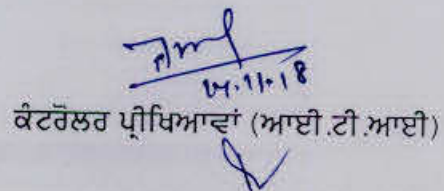 11.18
ਕੰਟਰੋਲਰ ਪ੍ਰੀਖਿਆਵਾਂ (ਆਈ.ਟੀ.ਆਈ)